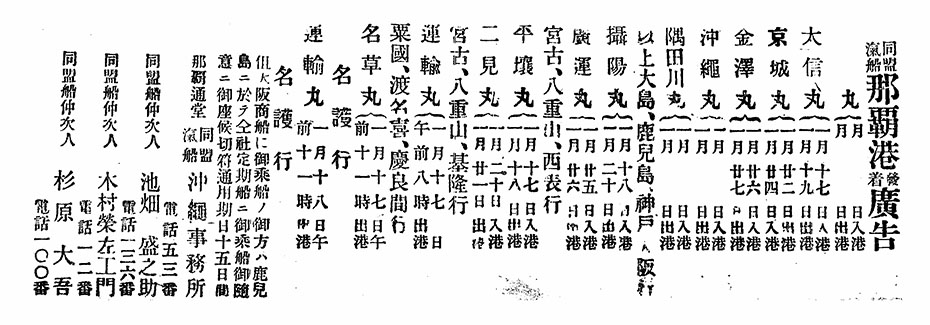 同盟滊船 那覇港發着廣告
丸 月 日入港
月 日出港
大信丸 一月十七日入港
一月十九日出港
京城丸 一月廿二日入港
一月廿四日出港
金澤丸 一月廿 日入港
一月廿七日出港
沖繩丸 月 日入港
月 日出港
隅田川丸 月 日入港
月 日出港
以上大島、鹿兒島、神戸、大阪行
攝陽丸 一月十八日入港
一月二十日出港
廣運丸 一月廿五日入港
一月廿六日出港
宮古、八重山、西表行
平壤丸 一月十七日入港
一月十八日出港
二見丸 一月二十日入港
一月廿一日出港
宮古、八重山、基隆行
運輸丸 一月十七日
午前八時出港
粟國、渡名喜、慶良間行
名草丸 一月十七日午
前十一時出港
名護行
運輸丸 一月十八日午
前十一時出港
名護行
但大阪商船に御乘船ノ御方ハ鹿兒
島ニ於テ仝社定期船ニ御乘船御隨
意ニ御座候切符通用期日十五日間
那覇通堂 同盟滊船 沖繩事務所
電話五三番
同盟船仲次人 池畑盛之助
電話一三六番
同盟船仲次人 木村榮左エ門
電話一一二番
同盟船仲次人 杉原大吾
電話一〇〇番